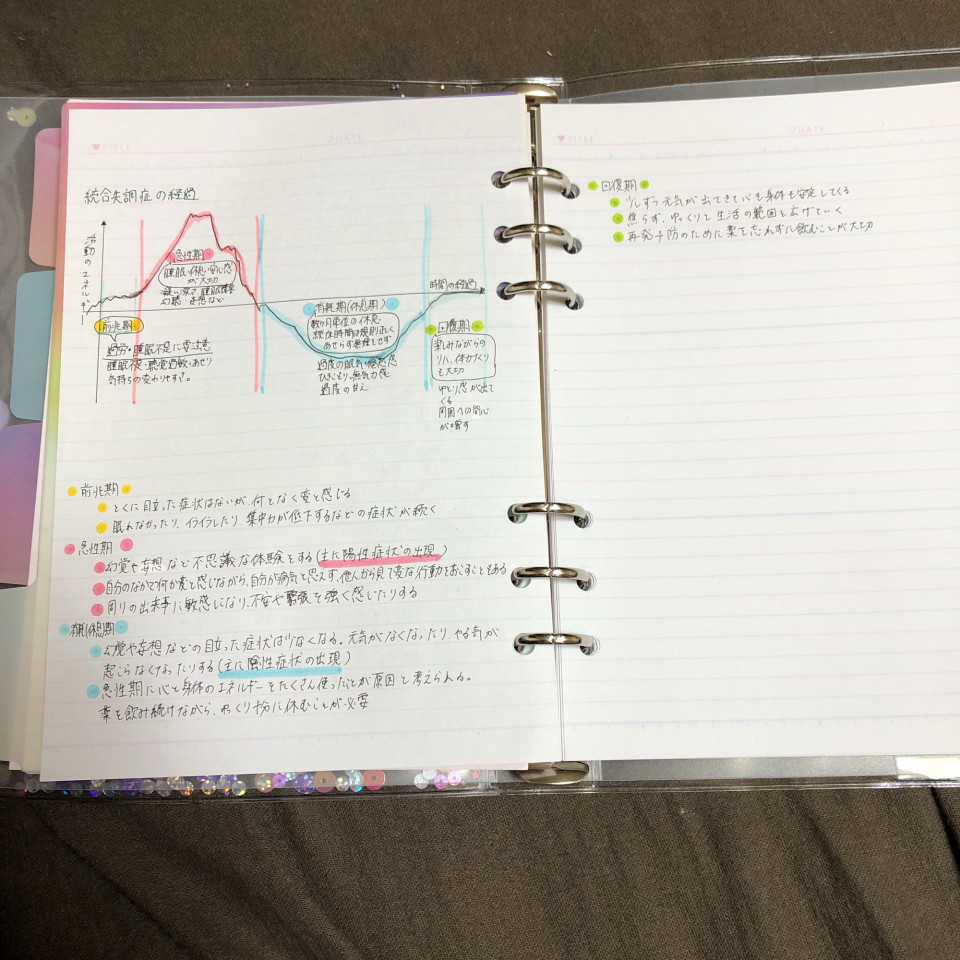 ♥TITLE
♡DATE
統合失調症の経過
活動のエネルギー
急性期
睡眠・休息・安心感
が大切
幻聴・妄想など
時間の経過
消耗期(休息期)
数ヶ月単位の休息
あせらず無理せず
過度の眠気・倦怠感
ひきこもり・無気力感
過度の甘え
前兆期
過労・睡眠不足に要注意
睡眠不足・聴覚過敏・あせり
気持ちの変わりやすさ。
回復期
楽しみながらの
リハ、体力づくり
も大切
ゆとり感が出て
くる
周囲への関心
が増す
前兆期
とくに目立った症状はないが、何となく変と感じる
眠れなかったり、イライラしたり、集中力が低下するなどの症状が続く
急性期
幻覚や妄想など不思議な体験をする(主に陽性症状の出現)
自分のなかで何か変と感じながら、自分が病気と思えず、他人から見て変な行動をおこすこともある
周りの出来事に敏感になり、不安や緊張を強く感じたりする
(休息期)
幻覚や妄想などの目立った症状は少なくなる。元気がなくなったり、やる気が
起こらなくなったりする(主に陰性症状の出現)
急性期に心と身体のエネルギーをたくさん使ったことが原因と考えられる。
薬を飲み続けながら、ゆっくり十分に休むことが必要
♥TITLE
♡DATE
回復期
少しずつ元気が出てきて心も身体も安定してくる
焦らず、ゆっくりと生活の範囲を広げていく
再発予防のために薬を忘れずに飲むことが大切